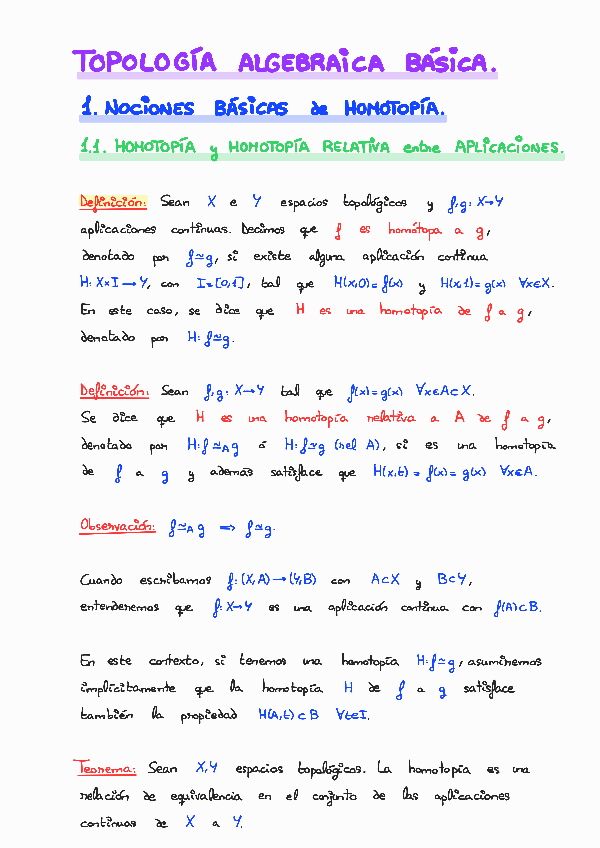 TOPOLOGÍA ALGEBRAICA BÁSICA.
1. NOCIONES BÁSICAS de HOMOTOPÍA.
1.1. HOMOTOPÍA y HOMOTOPÍA RELATIVA entre APLICACIONES.
Definición: Sean X e Y espacios topológicos y f,g: X→Y
aplicaciones continuas. Decimos que f es homótopa a g,
denotado por f≃g, si existe alguna aplicación continua
H: X×I → Y, con I=[0,1], tal que H(x,0)=f(x) y H(x,1)=g(x) ∀x∈X.
En este caso, se dice que H es una homotopía de f a g,
denotado por H: f≃g.
Definición: Sean f,g: X→Y tal que f(x)=g(x) ∀x∈A⊂X.
Se dice que H es una homotopía relativa a A de f a g,
denotado por H: f≃_A g ó H: f≃g (rel A), si es una homotopía
de f a g y además satisface que H(x,t) = f(x) = g(x) ∀x∈A.
Observación: f≃_A g => f≃g.
Cuando escribamos f: (X,A)→(Y,B) con A⊂X y B⊂Y,
entenderemos que f: X→Y es una aplicación continua con f(A)⊂B.
En este contexto, si tenemos una homotopía H: f≃g, asumiremos
implícitamente que la homotopía H de f a g satisface
también la propiedad H(A,t)⊂B ∀t∈I.
Teorema: Sean X,Y espacios topológicos. La homotopía es una
relación de equivalencia en el conjunto de las aplicaciones
continuas de X a Y.